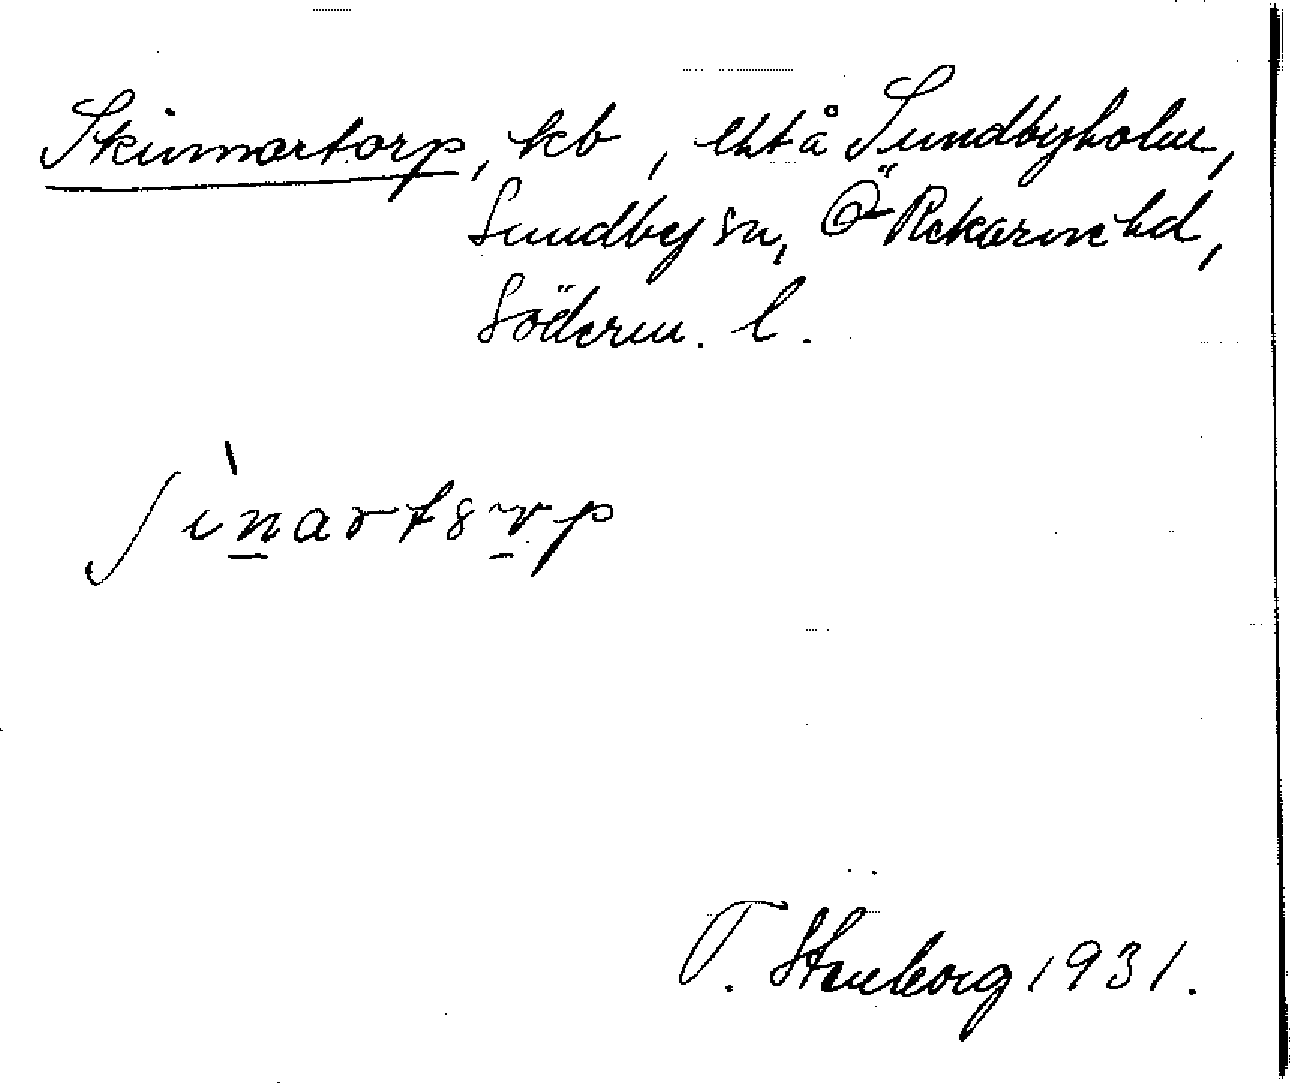 Skinnartorp, tcb, ekt å Sundbyholm,
Sundby sn, Ö Rekarne hd,
Söderm. l.
ʃìnartorp
T. Stenborg 1931.